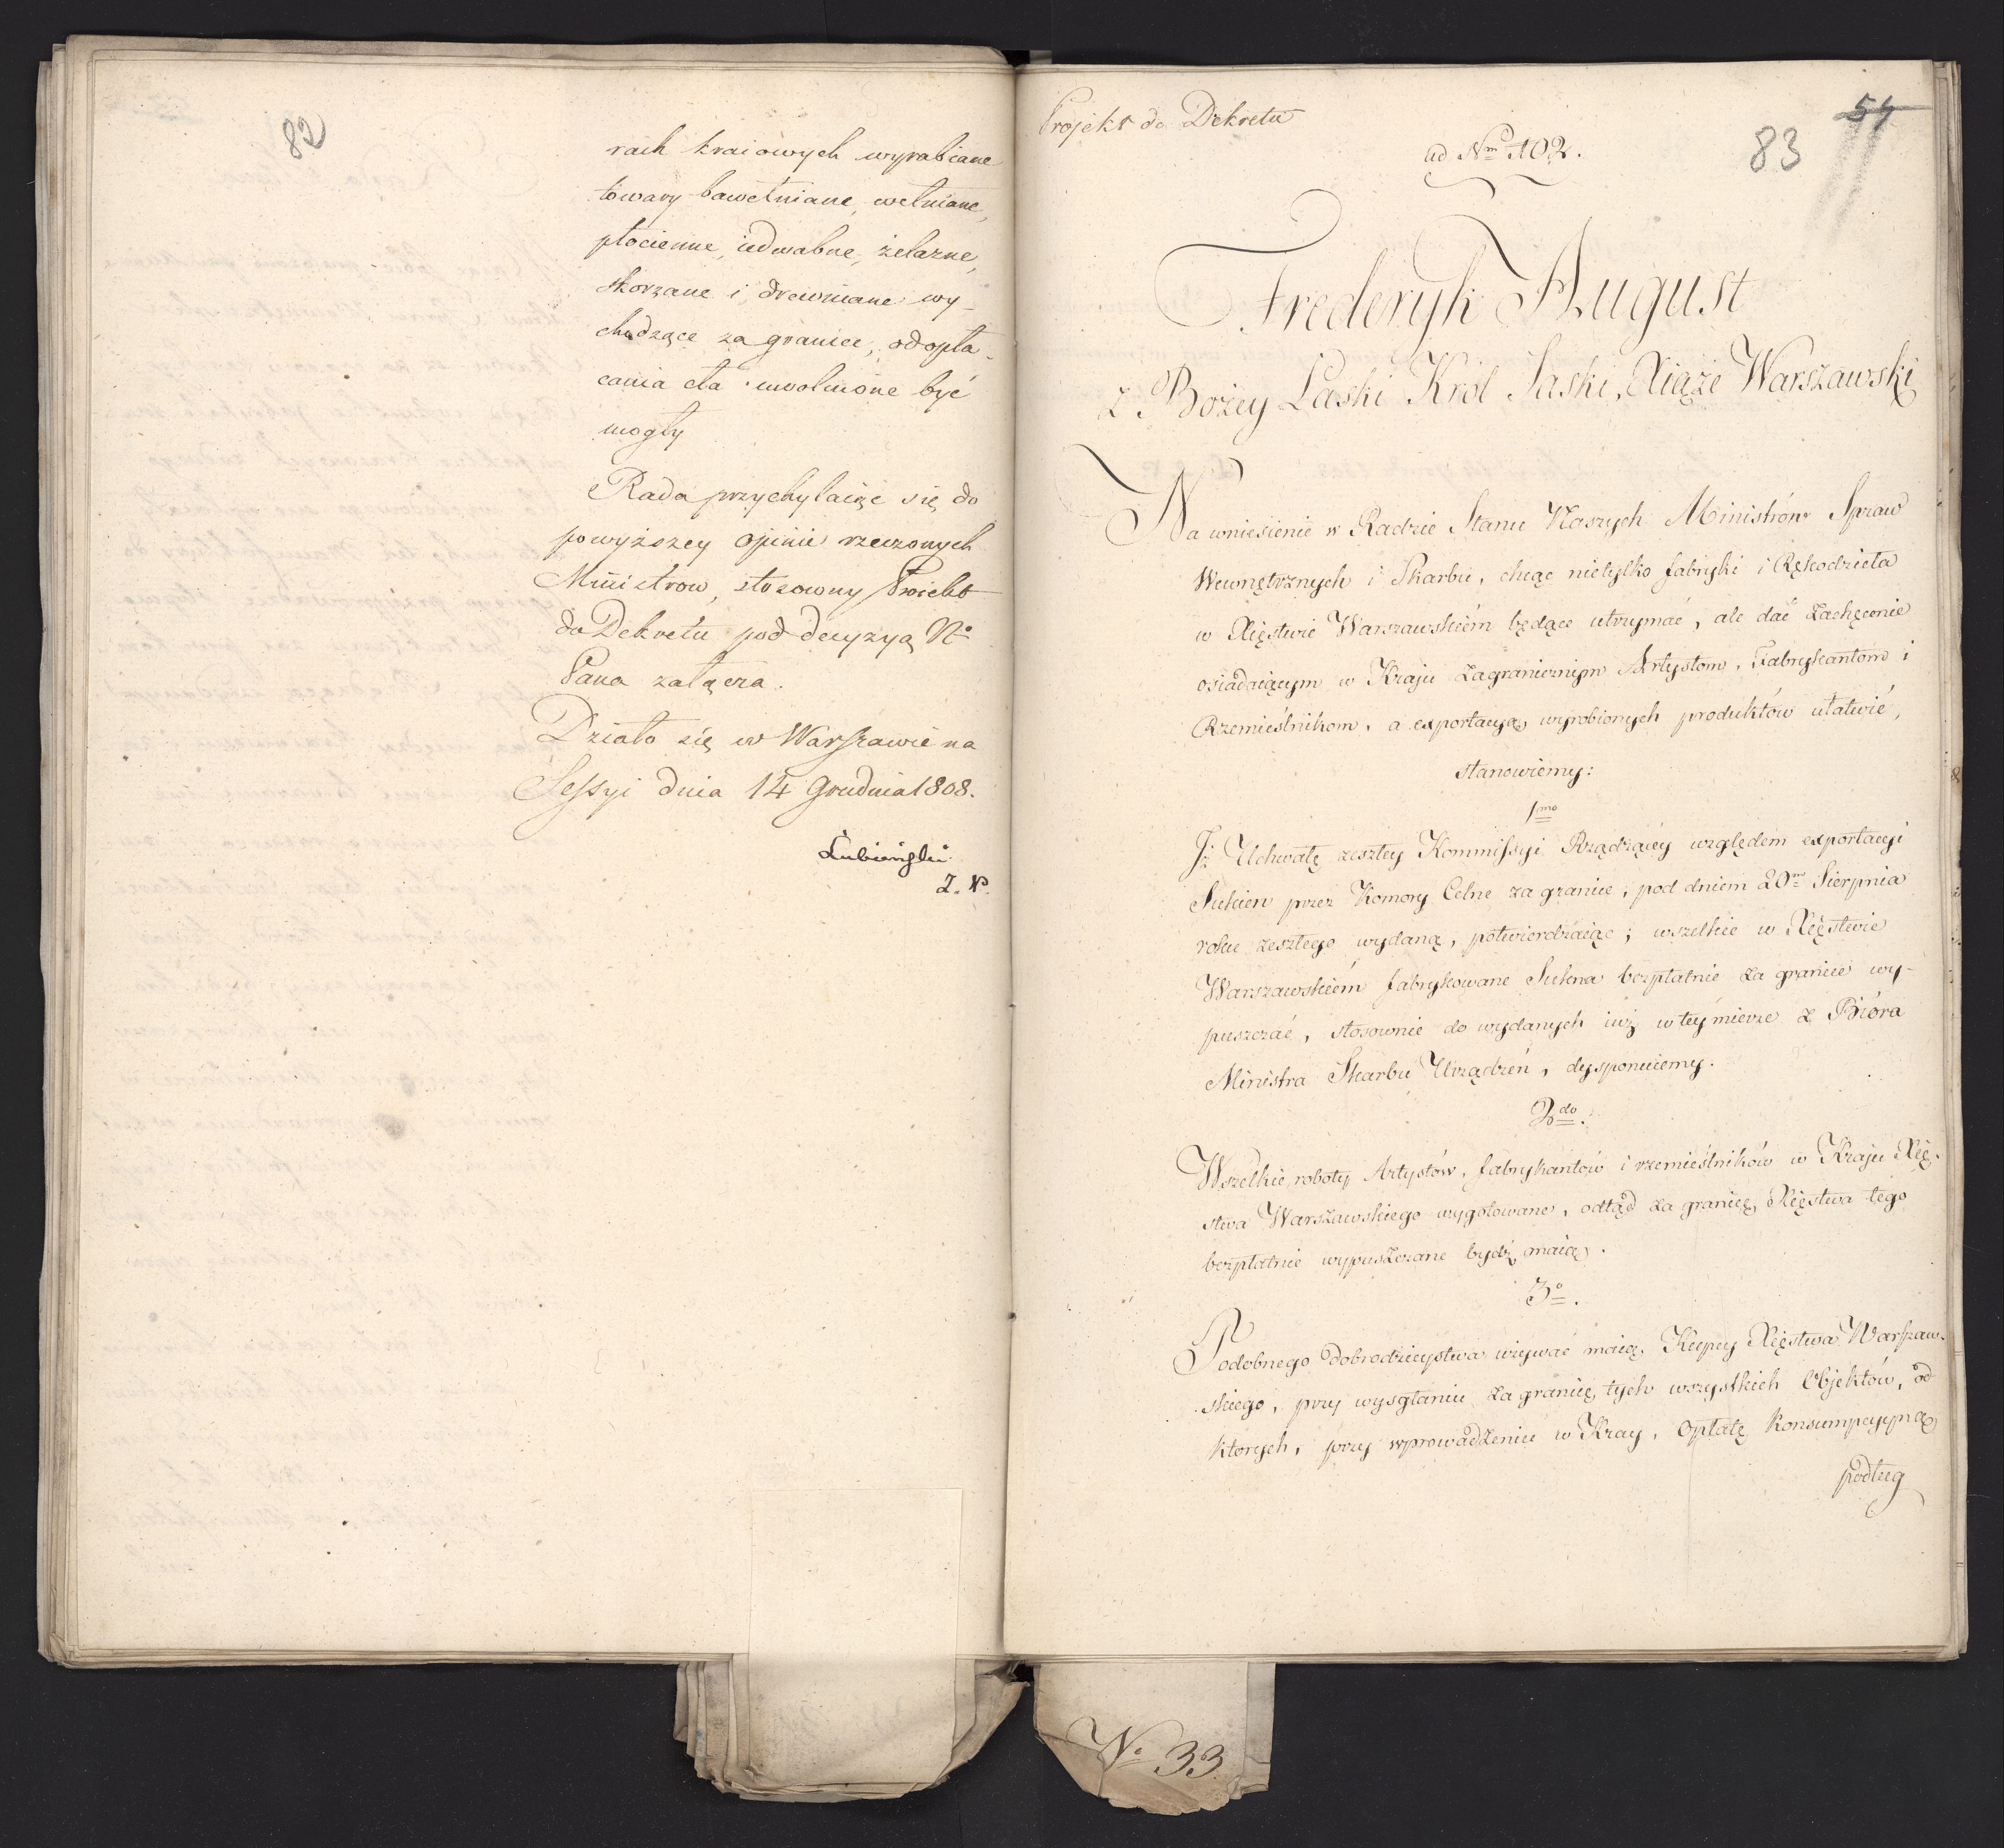 82
rach kraiowych wyrabiane
towary bawełniane, wełniane,
płocienne, iedwabne, żelazne,
skorzane i drewniane wy-
chodzące za granice, od opła-
cania cła uwolnione być
mogły
Rada przychylaiąc się do
powyższey opinii rzeczonych
Ministrow, stosowny Proiekt
do Dekretu pod decyzyą N°
Pana załącza.
Działo się w Warszawie na
Sessyi dnia 14 Grudnia 1808.
Łubieński
Z. P.
Projekt do Dekretu
ad Nm 102.
83
54
Frederyk August
z Bożey Łaski Król Saski, Xiąże Warszawski
Na wniesienie w Radzie Stanu Naszych Ministrów Spraw
Wewnętrznych i Skarbu, chcąc nietylko fabryki i Rękodzieła
w Xięstwie Warszawskiém będące utrzymać, ale dać zachęcenie
osiadaiącym w Kraju zagranicznym Artystom, Fabrykantom i
Rzemieślnikom, a exportacyą wyrobionych produktów ułatwić,
stanowiemy:
1mo
Iż Uchwałę zeszłey Kommissyi Rządzącéy względem exportacyi
Sukien przez Komory Celne za granice, pod dniem 20mo Sierpnia
roku zeszłego wydaną, potwierdzaiąc; wszelkie w Xięstwie
Warszawskiém fabrykowane Sukna bezpłatnie za granice wy-
puszczać, stosownie do wydanych iuż w téy mierze z Bióra
Ministra Skarbu Urządzeń, dysponuiemy.
2do.
Wszelkie roboty Artystów, fabrykantów i rzemieślników w Kraju Xię-
stwa Warszawskiego wygotowane, odtąd za granicę Xięstwa tego
bezpłatnie wypuszczane bydź maią.
3o.
Podobnego dobrodzieystwa używać maią Kupcy Xięstwa Warszaw-
skiego, przy wysyłaniu za granicę tych wszystkich Objektów, od
ktorych, przy wprowadzeniu w Kray, Opłatę Konsumpcyyną
podług
No 33